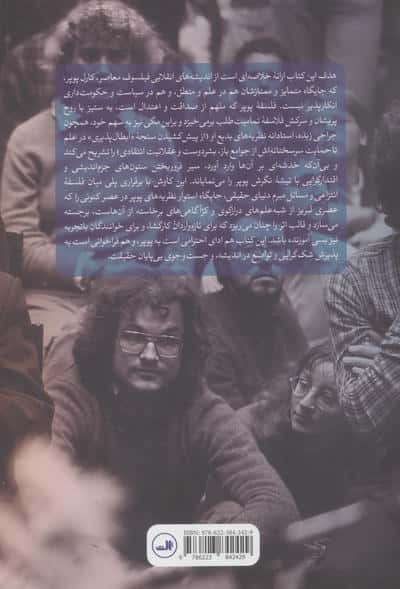 هدف این کتاب ارائهٔ خلاصه‌ای است از اندیشه‌های انقلابی فیلسوف معاصر، کارل پوپر،
که جایگاه متمایز و ممتازشان هم در علم و منطق، و هم در سیاست و حکومت‌داری
انکارپذیر نیست. فلسفهٔ پوپر که ملهم از صداقت و اعتدال است، به ستیز با روح
پریشان و سرکش فلاسفهٔ تمامیت‌طلب برمی‌خیزد و براین مگی نیز به سهم خود، همچون
جراحی زبده، استادانه نظریه‌های بدیع او (از پیش‌کشیدن سنجهٔ «ابطال‌پذیری» در علم
تا حمایت سرسختانه‌اش از جوامع باز، بشردوست و عقلانیت انتقادی) را تشریح می‌کند
و بی‌آن‌که خدشه‌ای بر آن‌ها وارد آورد، سیر فروریختن ستون‌های جزم‌اندیشی و
اقتدارگرایی با تیشهٔ نگرش پوپر را می‌نمایاند. این کاوش با برقراری پلی میان فلسفهٔ
انتزاعی و مسائل مبرم دنیای حقیقی، جایگاه استوار نظریه‌های پوپر در عصر کنونی را که
عصری لبریز از شبه‌علم‌های درازگوی و کژآگاهی‌های برخاسته از آن‌هاست، برجسته
می‌سازد و قالب اثر را چنان می‌ریزد که برای تازه‌واردان کارگشا، و برای خوانندگان باتجربه
نیز بسی آموزنده باشد. این کتاب هم ادای احترامی است به پوپر، و هم فراخوانی است به
پذیرش شک‌گرایی و تواضع در اندیشه، و جست‌وجوی بی‌پایان حقیقت.
ISBN: 978-622-384-242-9
9 786223 842429